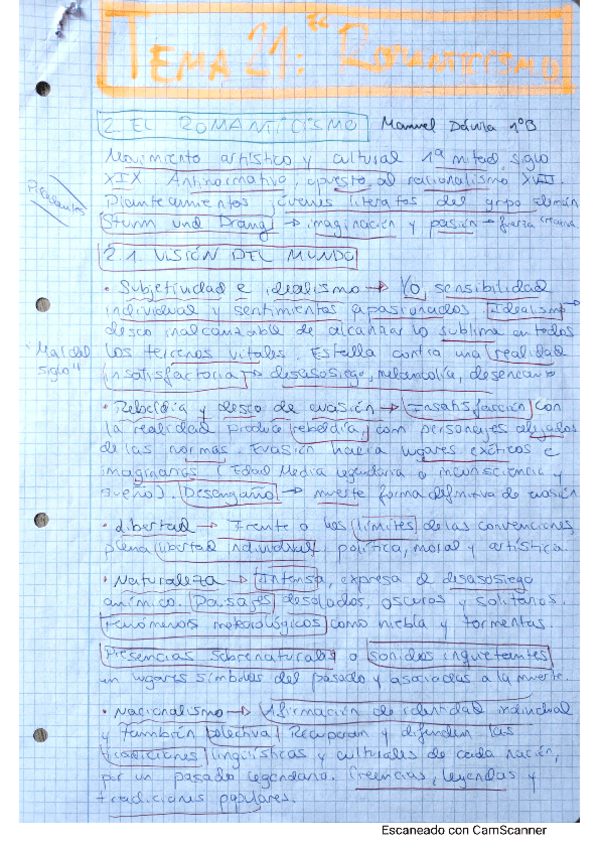 TEMA 21: EL ROMANTICISMO
2. EL ROMANTICISMO Manuel Dávila 1ºB
Movimiento artístico y cultural 1ª mitad siglo
XIX Antinormativo, opuesto al racionalismo XVIII.
Planteamientos jóvenes literatos del grupo alemán
Sturm und Drang → imaginación y pasión → fuerza creativa
2.1. VISIÓN DEL MUNDO
• Subjetividad e idealismo → Yo, sensibilidad
individual y sentimientos apasionados. Idealismo →
deseo inalcanzable de alcanzar lo sublime en todos
"Mal del siglo"
los terrenos vitales. Estalla contra una realidad
insatisfactoria → desasosiego, melancolía, desencanto
• Rebeldía y deseo de evasión → Insatisfacción con
la realidad produce rebeldía, con personajes alejados
de las normas. Evasión hacia lugares exóticos e
imaginarios (Edad Media legendaria o inconsciencia y
sueño). Desengaño → muerte forma definitiva de evasión
• Libertad → Frente a los límites de las convenciones,
plena libertad individual, política, moral y artística.
• Naturaleza → Intensa, expresa el desasosiego
anímico. Paisajes desolados, oscuros y solitarios.
Fenómenos meteorológicos como niebla y tormentas.
Presencias sobrenaturales o sonidos inquietantes
en lugares símbolos del pasado y asociadas a la muerte.
• Nacionalismo → Afirmación de identidad individual
y también colectiva. Recuperan y difunden las
tradiciones lingüísticas y culturales de cada nación,
por un pasado legendario. Creencias, leyendas y
tradiciones populares.
Escaneado con CamScanner